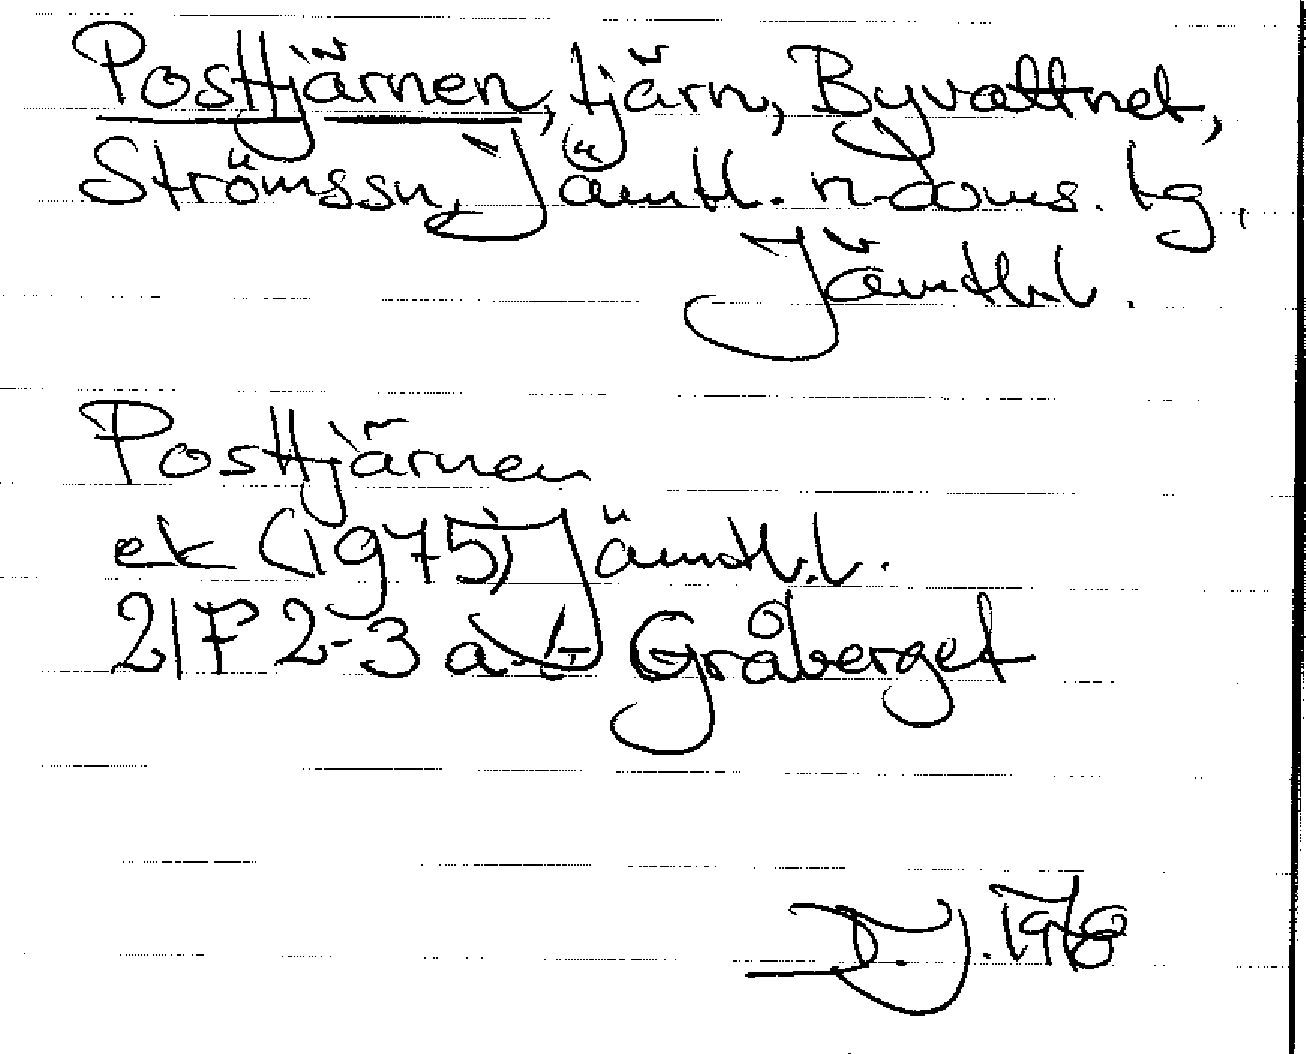 Posttjärnen, tjärn, Byvattnet,
Strömssn, Jämtl. n. doms. tg,
Jämtl.l.
Posttjärnen
ek (1975) Jämtl.l.
21F 2-3 a-b Gråberget
D.J. 1978